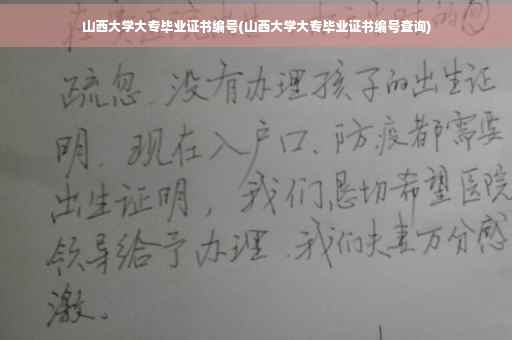 山西大学大专毕业证书编号(山西大学大专毕业证书编号查询)
疏忽、没有办理孩子的出生证
明、现在入户口、防疫都需要
出生证明，我们恳切希望医院
领导给予办理、我们夫妻万分感
激。